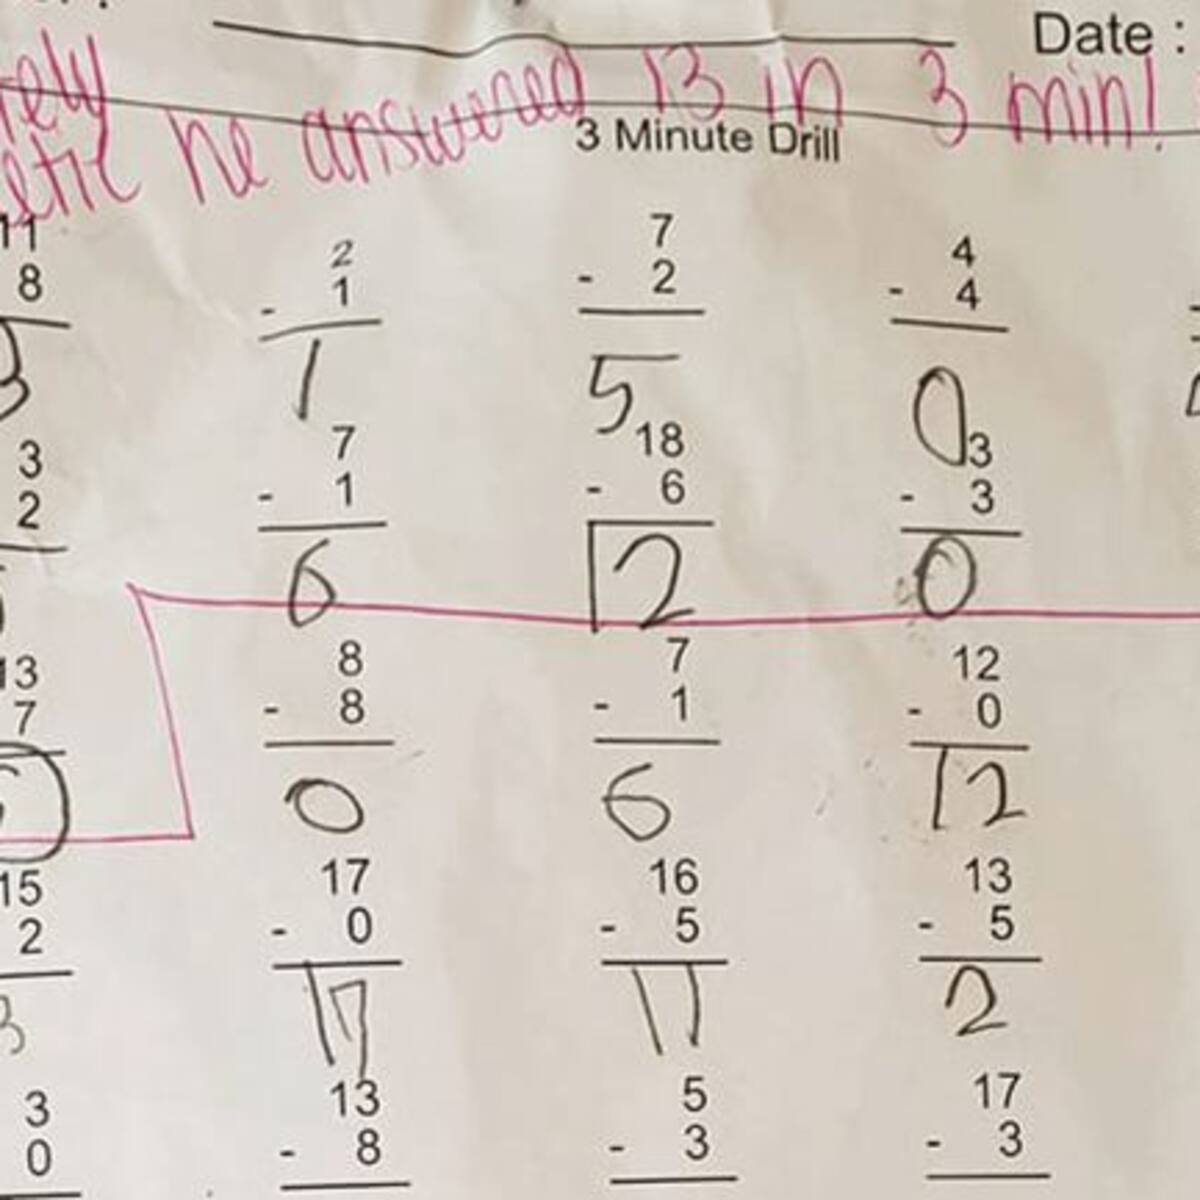 Date :
he answered 13 in 3 min!
3 Minute Drill
11 2 7 4
8 - 1 - 2 - 4
3 1 5 0
3 7 18 3
2 - 1 - 6 - 3
6 12 0
13 8 7 12
7 - 8 - 1 - 0
0 6 12
15 17 16 13
2 - 0 - 5 - 5
3 17 11 2
3 13 5 17
0 - 8 - 3 - 3